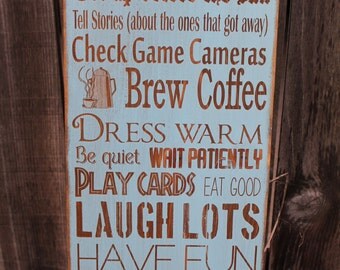 Tell Stories (about the ones that got away)
Check Game Cameras
Brew Coffee
DRESS WARM
Be quiet WAIT PATIENTLY
PLAY CARDS EAT GOOD
LAUGH LOTS
HAVE FUN